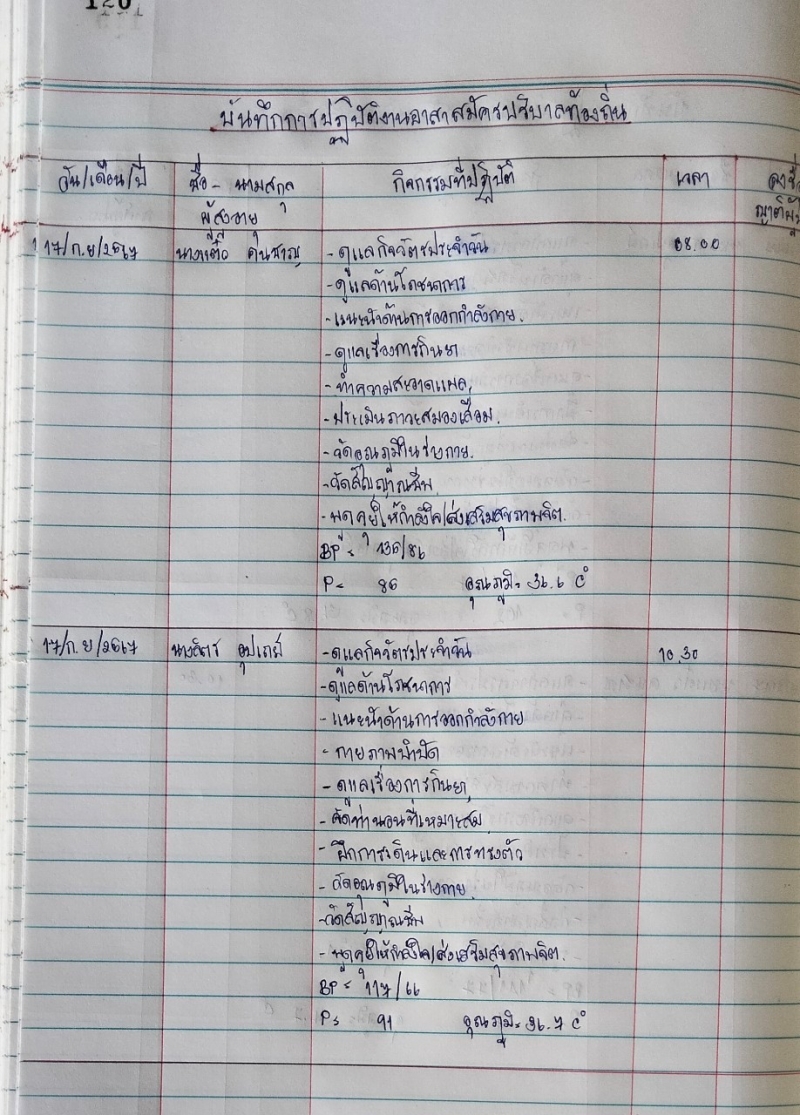 120
บันทึกการปฏิบัติงานอาสาสมัครบริบาลท้องถิ่น
วัน/เดือน/ปี ชื่อ - นามสกุล กิจกรรมที่ปฏิบัติ เวลา ลงชื่อ
ผู้สูงอายุ ญาติผู้
17/ก.ย/2567 นางแต๋ว 08.00
- ดูแลกิจวัตรประจำวัน
- ดูแลด้านโภชนาการ
- แนะนำด้านการออกกำลังกาย.
- ดูแลเรื่องการกินยา
- ทำความสะอาดแผล.
- ประเมินภาวะสมองเสื่อม.
- วัดอุณภูมิในร่างกาย.
- วัดสัญญาณชีพ.
- พูดคุยให้กำลังใจ/ส่งเสริมสุขภาพจิต.
BP = 136/86
P = 86 อุณภูมิ = 36.6 C°
17/ก.ย/2567 นางฉัตร 10.30
- ดูแลกิจวัตรประจำวัน
- ดูแลด้านโภชนาการ
- แนะนำด้านการออกกำลังกาย
- กายภาพบำบัด
- ดูแลเรื่องการกินยา
- จัดท่านอนที่เหมาะสม
- ฝึกการเดินและการทรงตัว
- วัดอุณภูมิในร่างกาย.
- วัดสัญญาณชีพ
- พูดคุยให้กำลังใจ/ส่งเสริมสุขภาพจิต.
BP = 117/66
P = 91 อุณภูมิ = 36.7 C°